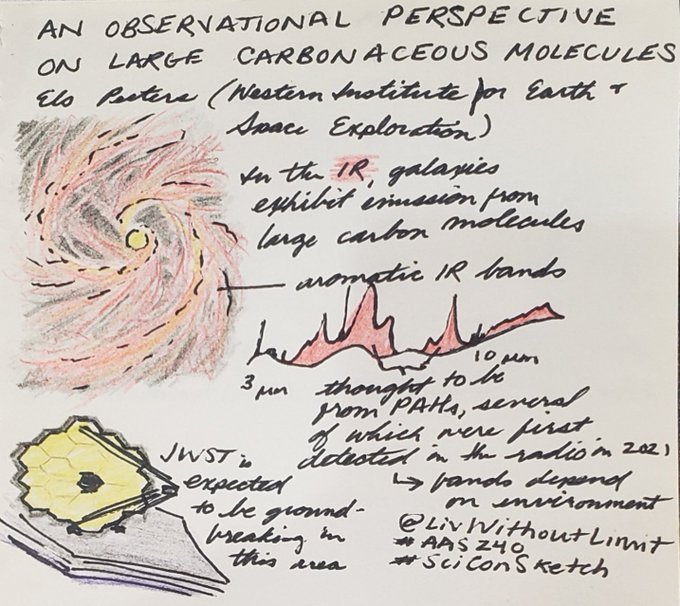 AN OBSERVATIONAL PERSPECTIVE
ON LARGE CARBONACEOUS MOLECULES
Els Peeters (Western Institute for Earth +
Space Exploration)
In the IR, galaxies
exhibit emission from
large carbon molecules
aromatic IR bands
3 μm
10 μm
thought to be
from PAHs, several
of which were first
detected in the radio in 2021
↳ bands depend
on environment
JWST is
expected
to be ground-
breaking in
this area
@LivWithoutLimit
#AAS240
#SciConSketch